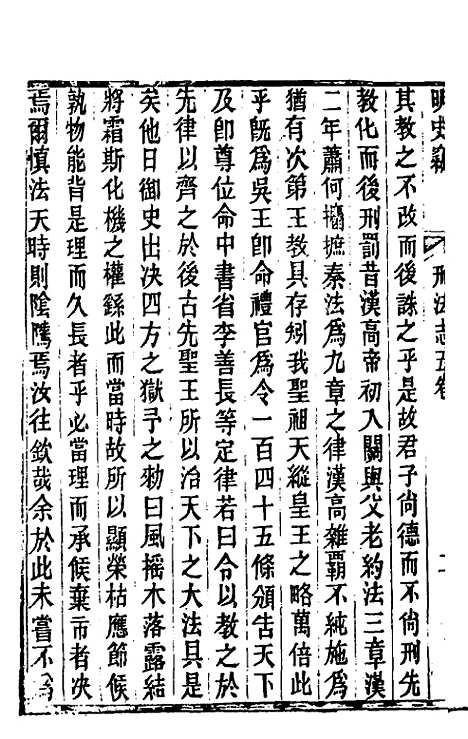 明史竊 刑法志五卷 二
其教之不改而後誅之乎是故君子尚德而不尚刑先
教化而後刑罰昔漢高帝初入關與父老約法三章漢
二年蕭何攟摭秦法爲九章之律漢高雜覇不純施爲
猶有次第王教具存矧我聖祖天縱皇王之略萬倍此
乎旣爲吳王卽命禮官爲令一百四十五條頒告天下
及卽尊位命中書省李善長等定律若曰令以教之於
先律以齊之於後古先聖王所以治天下之大法具是
矣他日御史出決四方之獄予之勑曰風摇木落露結
將霜斯化機之權繇此而當時故所以顯榮枯應節候
孰物能背是理而久長者乎必當理而承候棄市者决
焉爾慎法天時則陰隲焉汝往欽哉余於此未嘗不爲